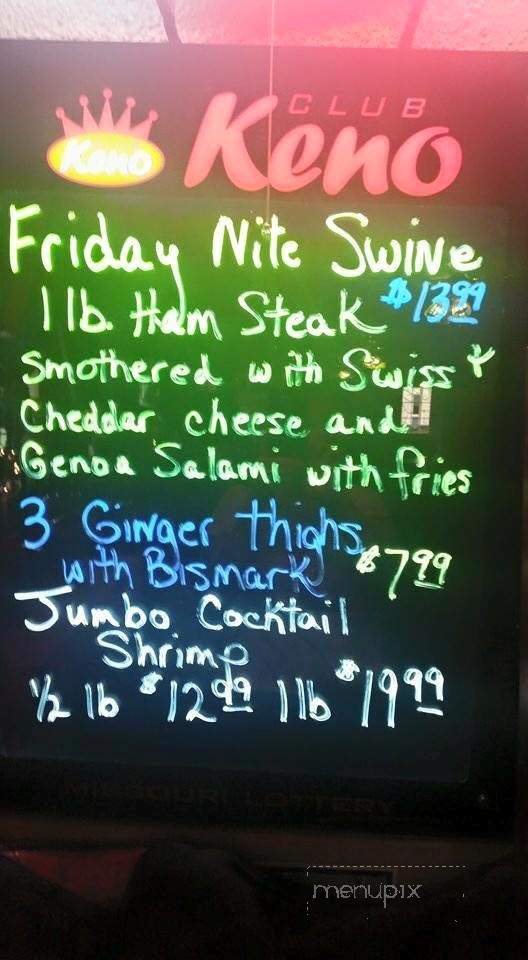 CLUB
Keno
Keno
Friday Nite Swine
1 lb. Ham Steak $13.99
Smothered with Swiss &
Cheddar cheese and
Genoa Salami with fries
3 Ginger thighs
with Bismark $7.99
Jumbo Cocktail
Shrimp
1/2 lb $12.99 1 lb $19.99
MISSOURI LOTTERY
menupix